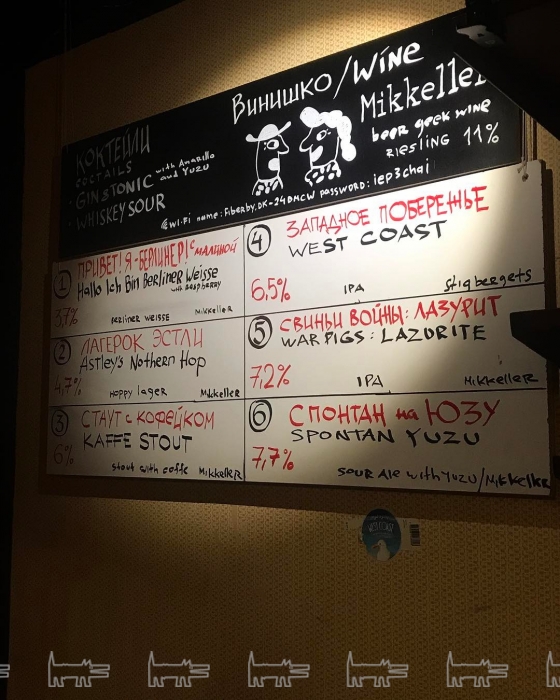 Винишко/Wine
Mikkeller
beer geek wine
Riesling 11%
КОКТЕЙЛИ
COCTAILS
- GIN & TONIC with Amarillo and Yuzu
- WHISKEY SOUR
Wi-Fi name: Fiberby.DK-24DMCW password: iep3chai
1 ПРИВЕТ! Я-БЕРЛИНЕР! с МАЛИНОЙ
Hallo Ich Bin Berliner Weisse
with RASPBERRY
3,7% BERLINER WEISSE MikkelleR
2 ЛАГЕРОК ЭСТЛИ
Astley's Nothern Hop
4,7% hoppy lager MikkelleR
3 СТАУТ с КОФЕЙКОМ
KAFFE STOUT
6% stout with coffe MikkelleR
4 ЗАПАДНОЕ ПОБЕРЕЖЬЕ
WEST COAST
6,5% IPA Stigbergets
5 СВИНЬИ ВОЙНЫ: ЛАЗУРИТ
WARPIGS: LAZURITE
7,2% IPA MikkelleR
6 СПОНТАН на ЮЗУ
SPONTAN YUZU
7,7% SOUR ALE with YUZU/MikkelleR